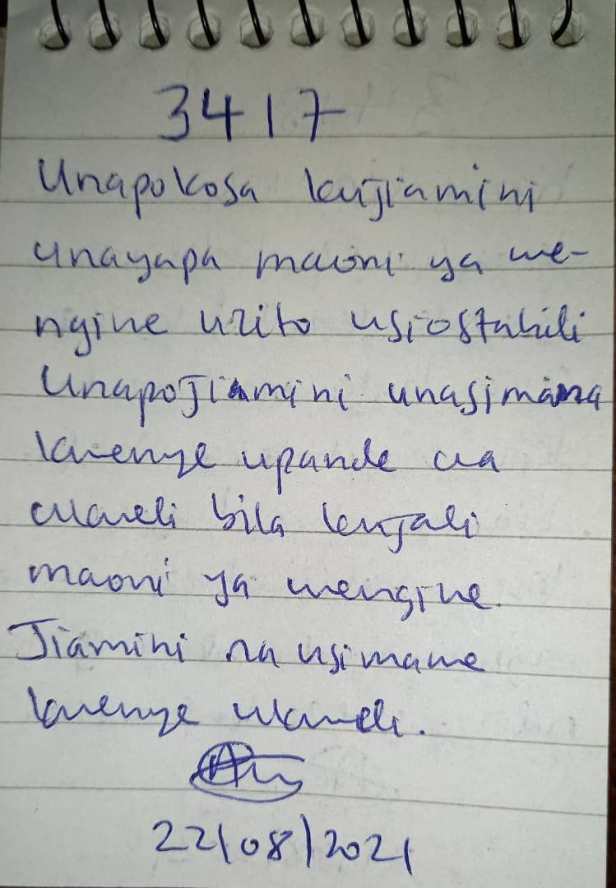 3417
Unapokosa kujiamini
unayapa maoni ya we-
ngine uzito usiostahili
Unapojiamini unasimama
kwenye upande wa
ukweli bila kujali
maoni ya wengine.
Jiamini na usimame
kwenye ukweli.
22/08/2021